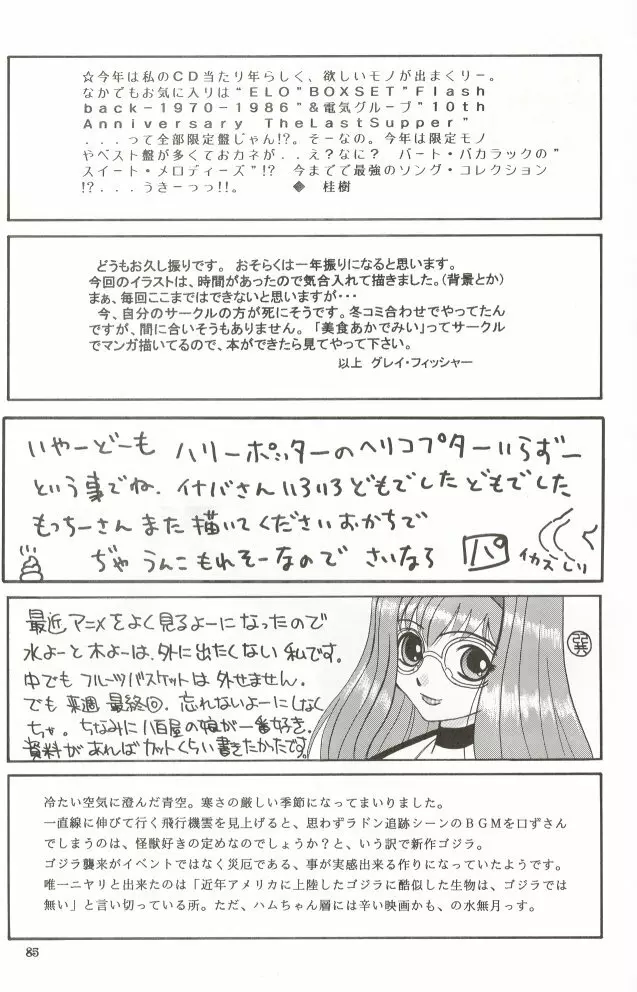 ☆今年は私のCD当たり年らしく、欲しいモノが出まくりー。
なかでもお気に入りは“ELO”BOXSET”Flash
back－1970－1986”&電気グループ”10th
Anniversary TheLastSupper”
...って全部限定盤じゃん!?。そーなの。今年は限定モノ
やベスト盤が多くておカネが..え？なに？ バート・バカラックの”
スイート・メロディーズ”!? 今までで最強のソング・コレクション
!?...うきーっっ!!。 ◆ 桂樹
どうもお久し振りです。おそらくは一年振りになると思います。
今回のイラストは、時間があったので気合入れて描きました。(背景とか)
まぁ、毎回ここまではできないと思いますが・・・
今、自分のサークルの方が死にそうです。冬コミ合わせでやってたん
ですが、間に合いそうもありません。「美食あかでみい」ってサークル
でマンガ描いてるので、本ができたら見てやって下さい。
以上 グレイ・フィッシャー
いやーどーも ハリーポッターのヘリコプターいらずー
という事でね.イナバさんいろいろどもでしたどもでした
もっちーさんまた描いてくださいおかちで
ぢゃうんこもれそーなので さいなら パ イカズしり
最近アニメをよく見るよーになったので
水よーと木よーは、外に出たくない私です。
中でもフルーツバスケットは外せません.
でも来週最終回。忘れないよーにしなく
ちゃ。ちなみに八百屋の娘が一番好き.
資料があればカットくらい書きたかったです。
冷たい空気に澄んだ青空。寒さの厳しい季節になってまいりました。
一直線に伸びて行く飛行機雲を見上げると、思わずラドン追跡シーンのＢＧＭを口ずさん
でしまうのは、怪獣好きの定めなのでしょうか？と、いう訳で新作ゴジラ。
ゴジラ襲来がイベントではなく災厄である、事が実感出来る作りになっていたようです。
唯一ニヤリと出来たのは「近年アメリカに上陸したゴジラに酷似した生物は、ゴジラでは
無い」と言い切っている所。ただ、ハムちゃん層には辛い映画かも、の水無月っす。
85